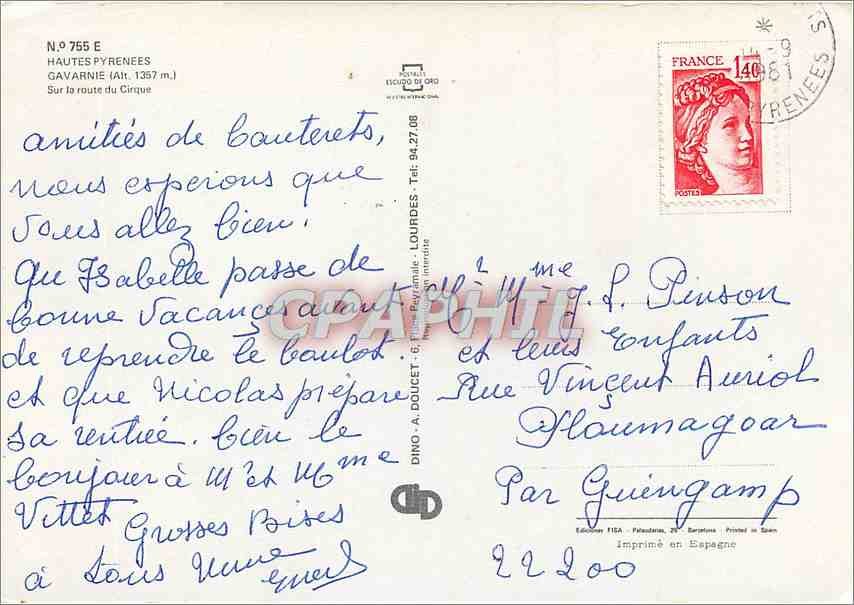 N.º 755 E
HAUTES PYRENEES
GAVARNIE (Alt. 1357 m.)
Sur la route du Cirque
POSTALES
ESCUDO DE ORO
FRANCE 1,40
POSTES
14-9
1981
PYRENEES
amitiés de Cauterets,
nous esperons que
vous allez bien.
qu Isabelle passe de
bonne vacances avant
de reprendre le boulot.
et que Nicolas prépare
sa rentrée. bien le
bonjour à Mr et Mme
Vittet
Grosses Bises
à tous
DINO - A. DOUCET - 6, Place Peyramale - LOURDES - Tél: 94.27.08
Reproduction interdite
CPAPHIL
Mr Mme J. L. Pinson
et leurs Enfants
Rue Vincent Auriol
Ploumagoar
Par Guingamp
22200
Ediciones FISA - Palaudarias, 26 - Barcelona - Printed in Spain
Imprimé en Espagne